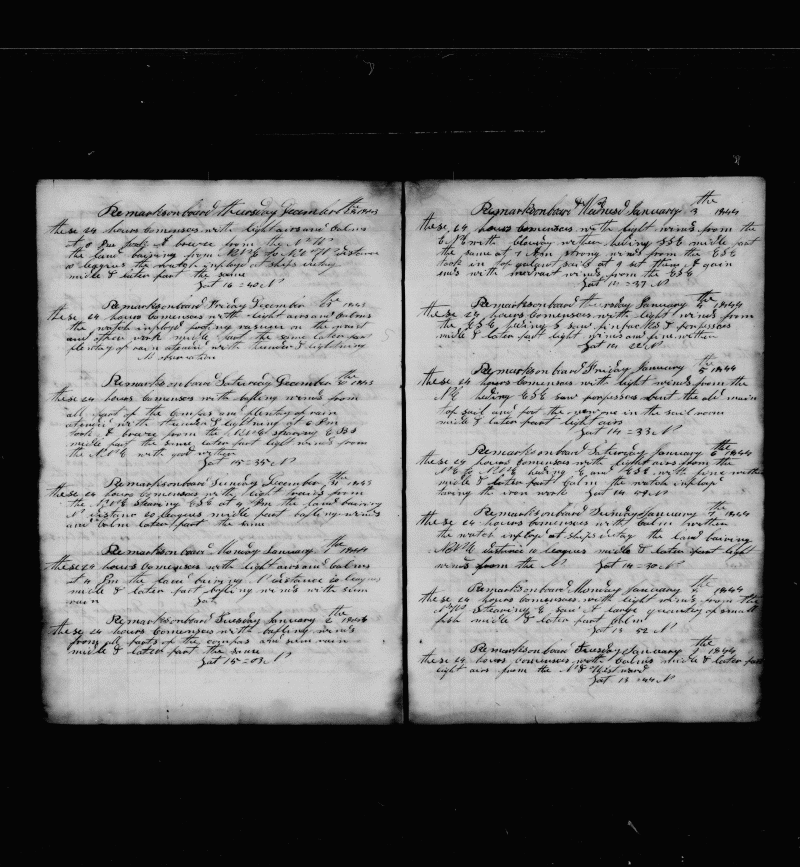 Remarks on board Thursday December 1843
these 24 hours comenses with light airs and Calms
at 4 Pm took A bouree from the
the land bairing from NW to distance
10 leagues the watch imployd at ships duty
midle & later part the same
Lat 16=40 N
Remarks on board Friday December 15 1843
these 24 hours Comenses with light airs and Calms
the watch imployd
and other work midle part the same later part
plentay of rain atended with thunder & lightning
No observation
Remarks on board Saturday December 1843
these 24 hours Comenses with bafling winds from
all part of the Compas and plenty of rain
atended with thunder & lightning at 6 Pm
took A bouree from the stearing ESE
midle part the same later part light winds from
the with good wether
Lat 15=35 N
Remarks on board Sunday December 31 the 1843
these 24 hours Comenses with light from
the stearing ESE at 4 Pm the land bairing
N distance 20 leagues midle part bafling winds
and Calm later part the same
Remarks on board Monday January 1 the 1844
these 24 hours Comenses with light airs and Calms
at 4 Pm the land bairing N distance 20 leagues
midle & later part bafling winds with sum
rain Lat
Remarks on board Tuesday January 2 the 1844
these 24 hours Comenses with bafling winds
from all parts of the compas and sum rain
midle & later part the same
Lat 15=03 N
Remarks on board Wednesd January 3 the 1844
these 24 hours comenses with light winds from the
ENE with wether heding SSE midle part
the same at 7 Am strong winds from the ESE
took in top galant sails at 9 set them A gain
ends with modrart winds from the ESE
Lat 14=37 N
Remarks on board Thursday January 4 the 1844
these 24 hours Comenses with light winds from
the ESE heding S saw finbacks & porpoises
midle & later part light winds and fine wether
Lat 14=22 N
Remarks on board Friday January 5 the 1844
these 24 hours Comenses with light winds from the
NE heding ESE saw porpoises bent the old main
top sail and put the new one in the sail room
midle & later part light airs
Lat 14=33 N
Remarks on board Saturday January 6 the 1844
these 24 hours Comenses with light airs from the
heding E and ESE with fine wether
midle & later part Calm the watch imployd
taring the iron work Lat 14=
Remarks on board Sunday January 7 the 1844
these 24 hours Comenses with Calm wether
the watch imployd at ships dutay the land bairing
distance 10 leagues midle & later part light
winds from the N Lat 14=30 N
Remarks on board Monday January 8 the 1844
these 24 hours Comenses with light winds from the
stearing E saw A large quantity of small
fish midle & later part calm
Lat 13=52 N
Remarks on board Tuesday January 9 the 1844
these 24 hours comenses with Calms midle & later part
light airs from the N & Westward
Lat 13=44 N